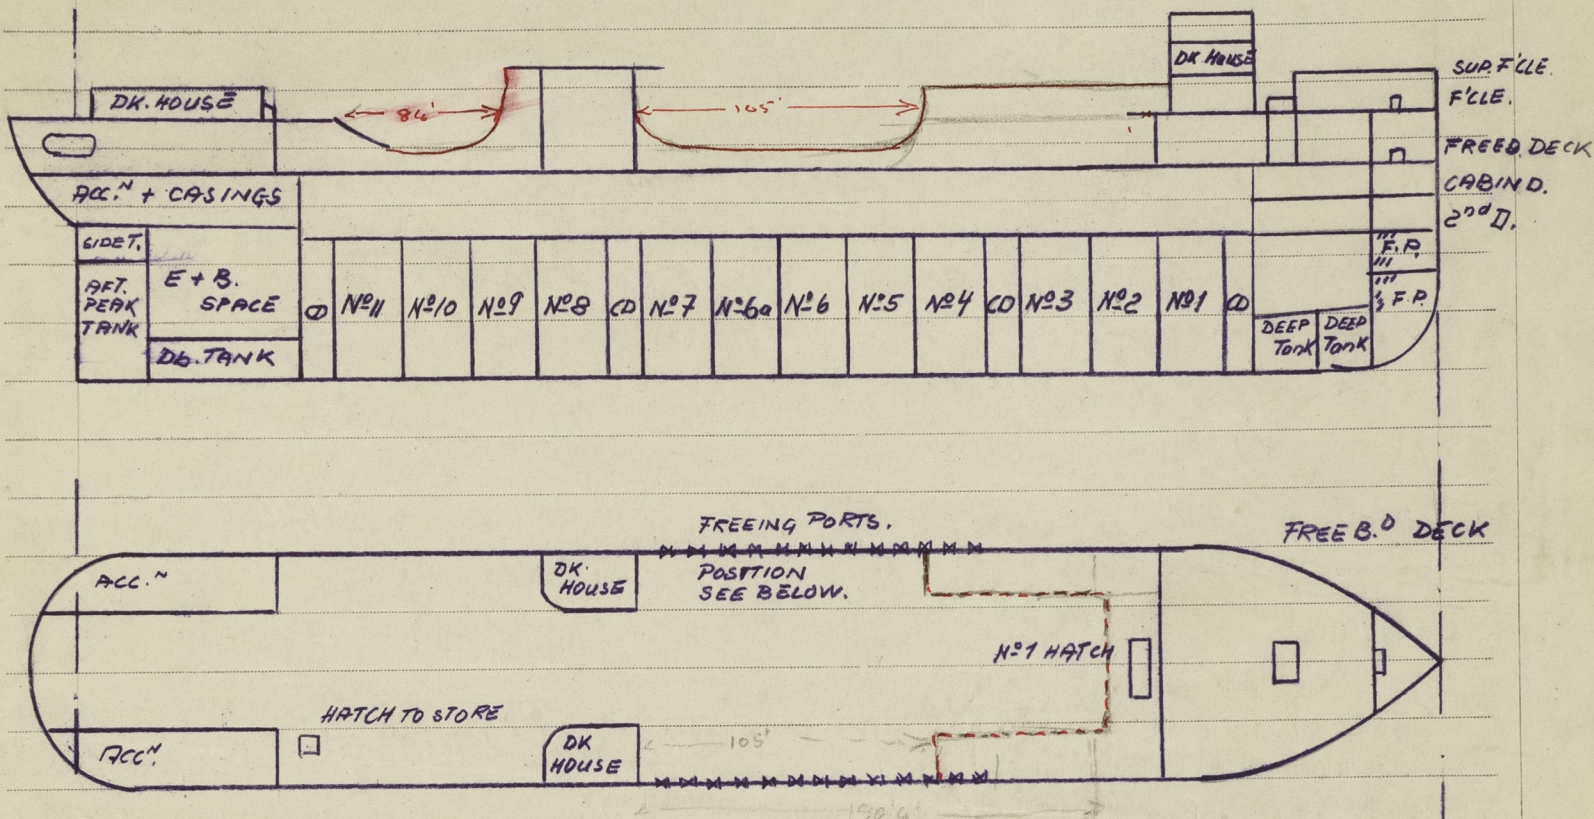 DK. HOUSE
84'
105'
DK. HOUSE
SUP. F'CLE.
F'CLE.
FREEB. DECK
CABIN D.
2nd D.
ACC.N + CASINGS
SIDE T.
AFT.
PEAK
TANK
E + B.
SPACE
Db. TANK
CD
No11
No10
No9
No8
CD
No7
No6a
No6
No5
No4
CD
No3
No2
No1
CD
DEEP
Tank
DEEP
Tank
F.P.
F.P.
FREEING PORTS.
POSITION
SEE BELOW.
FREE B.D DECK
ACC.N
DK.
HOUSE
No1 HATCH
HATCH TO STORE
ACCN.
DK
HOUSE
105'